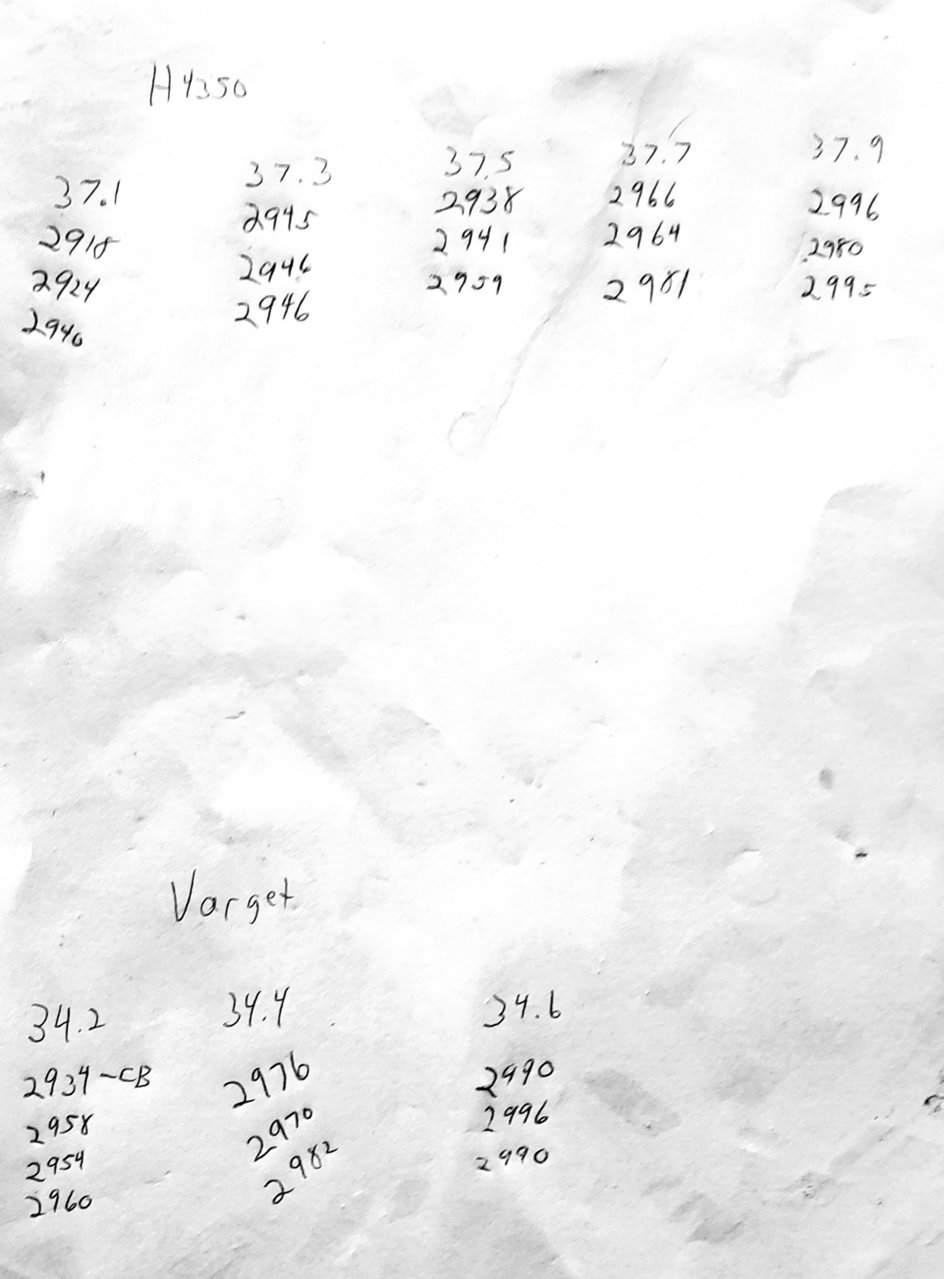 H4350
37.1 37.3 37.5 37.7 37.9
2918 2945 2938 2966 2996
2924 2946 2941 2964 2980
2940 2946 2959 2981 2995
Varget
34.2 34.4 34.6
2934-CB 2976 2990
2958 2970 2996
2954 2982 2990
2960